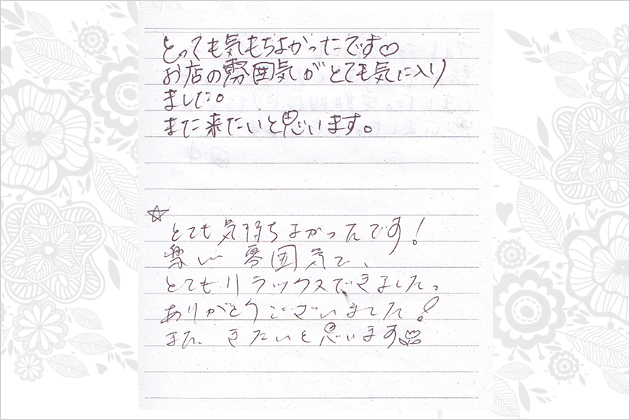 とっても気もちよかったです♡
お店の雰囲気がとても気に入り
ました。
また来たいと思います。
☆
とても気持ちよかったです!
雰囲気で、
とてもリラックスできました。
ありがとうございました!
また、きたいと思います